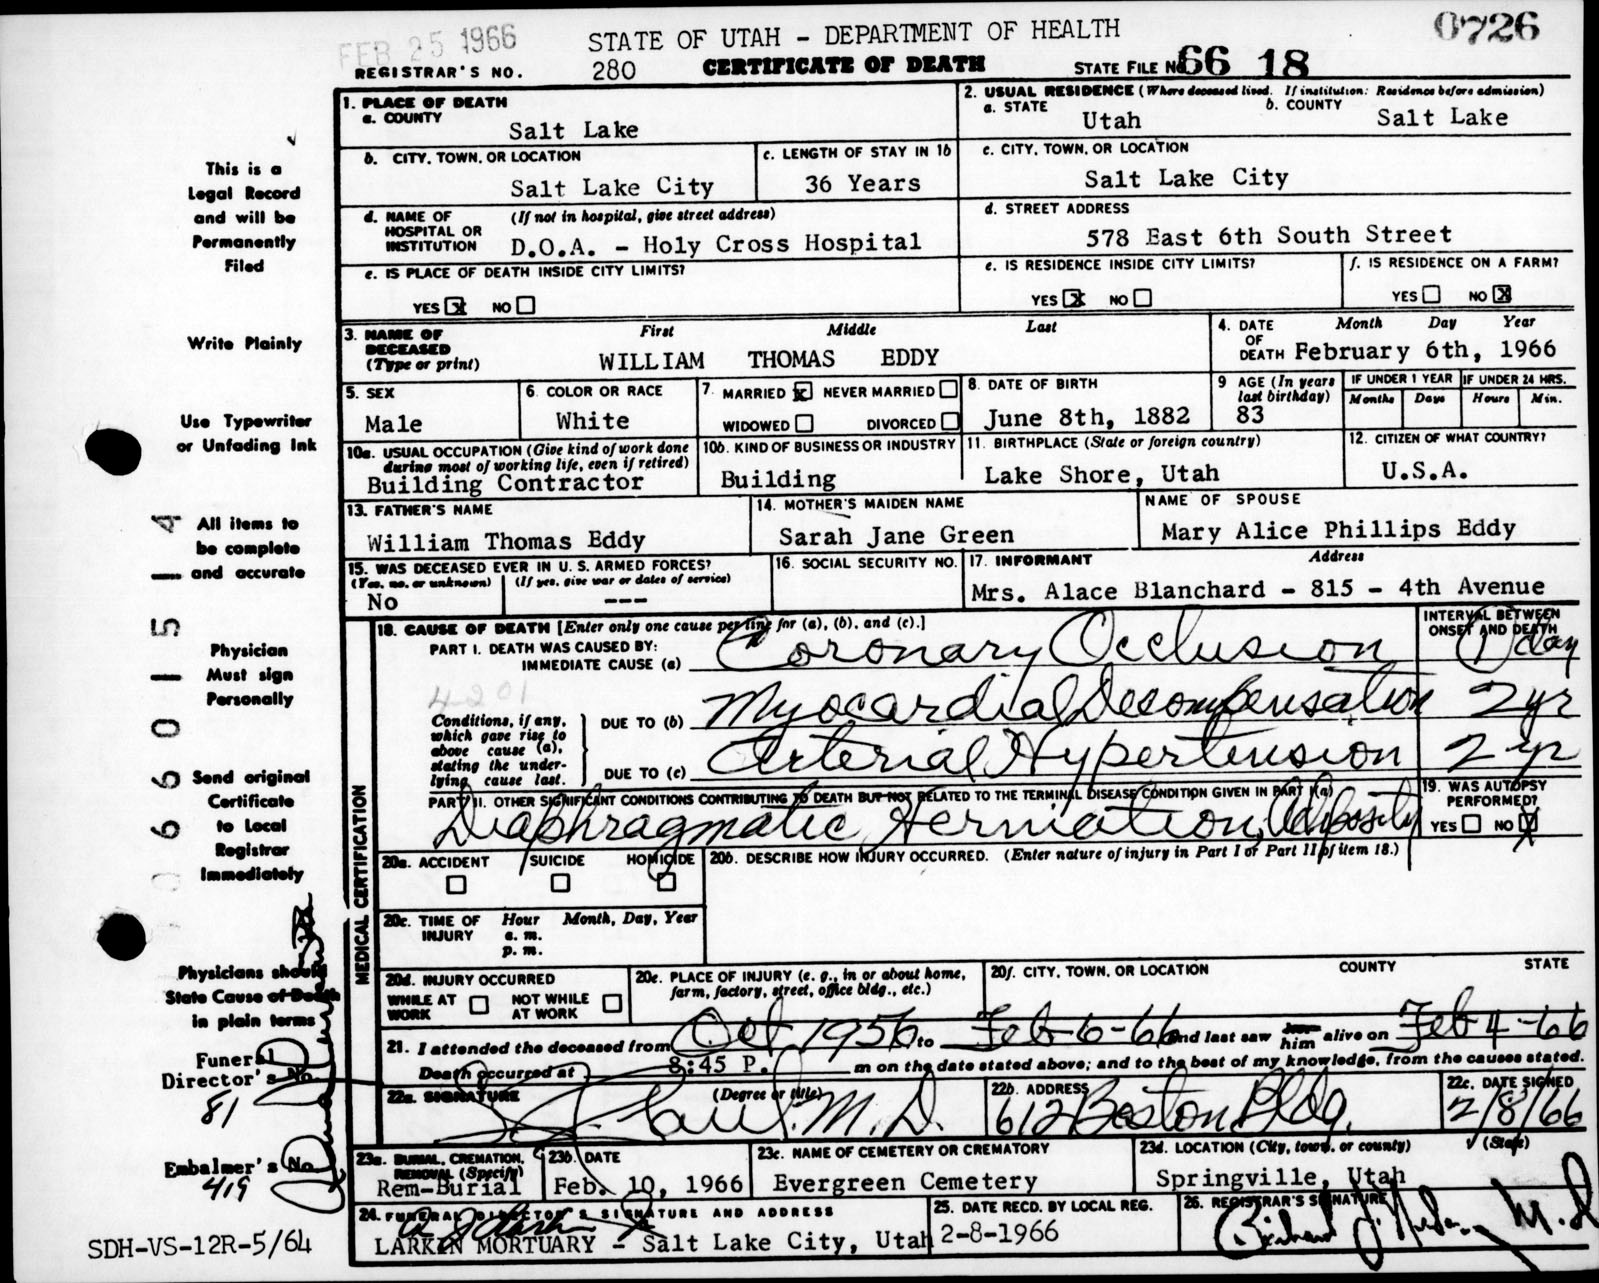 FEB 25 1966
STATE OF UTAH - DEPARTMENT OF HEALTH
0726
REGISTRAR'S NO. 280 CERTIFICATE OF DEATH STATE FILE NO. 66 18
1. PLACE OF DEATH
a. COUNTY
Salt Lake
2. USUAL RESIDENCE (Where deceased lived. If institution: Residence before admission)
a. STATE b. COUNTY
Utah Salt Lake
b. CITY, TOWN, OR LOCATION
Salt Lake City
c. LENGTH OF STAY IN 1b
36 Years
c. CITY, TOWN, OR LOCATION
Salt Lake City
d. NAME OF HOSPITAL OR INSTITUTION (If not in hospital, give street address)
D.O.A. - Holy Cross Hospital
d. STREET ADDRESS
578 East 6th South Street
e. IS PLACE OF DEATH INSIDE CITY LIMITS?
YES X NO
e. IS RESIDENCE INSIDE CITY LIMITS?
YES X NO
f. IS RESIDENCE ON A FARM?
YES NO X
3. NAME OF DECEASED (Type or print)
First Middle Last
WILLIAM THOMAS EDDY
4. DATE OF DEATH Month Day Year
February 6th, 1966
5. SEX
Male
6. COLOR OR RACE
White
7. MARRIED X NEVER MARRIED
WIDOWED DIVORCED
8. DATE OF BIRTH
June 8th, 1882
9 AGE (In years last birthday)
83
IF UNDER 1 YEAR IF UNDER 24 HRS.
Months Days Hours Min.
10a. USUAL OCCUPATION (Give kind of work done during most of working life, even if retired)
Building Contractor
10b. KIND OF BUSINESS OR INDUSTRY
Building
11. BIRTHPLACE (State or foreign country)
Lake Shore, Utah
12. CITIZEN OF WHAT COUNTRY?
U.S.A.
13. FATHER'S NAME
William Thomas Eddy
14. MOTHER'S MAIDEN NAME
Sarah Jane Green
NAME OF SPOUSE
Mary Alice Phillips Eddy
15. WAS DECEASED EVER IN U. S. ARMED FORCES?
(Yes, no, or unknown) (If yes, give war or dates of service)
No ---
16. SOCIAL SECURITY NO.
17. INFORMANT Address
Mrs. Alace Blanchard - 815 - 4th Avenue
18. CAUSE OF DEATH [Enter only one cause per line for (a), (b), and (c).]
INTERVAL BETWEEN ONSET AND DEATH
PART I. DEATH WAS CAUSED BY:
IMMEDIATE CAUSE (a) Coronary Occlusion 1 day
4201
Conditions, if any, which gave rise to above cause (a), stating the underlying cause last.
DUE TO (b) Myocardial Decompensation 2 yr
DUE TO (c) Arterial Hypertension 2 yr
PART II. OTHER SIGNIFICANT CONDITIONS CONTRIBUTING TO DEATH BUT NOT RELATED TO THE TERMINAL DISEASE CONDITION GIVEN IN PART I(a)
Diaphragmatic Herniation, Adiposity
19. WAS AUTOPSY PERFORMED?
YES NO X
MEDICAL CERTIFICATION
20a. ACCIDENT SUICIDE HOMICIDE
20b. DESCRIBE HOW INJURY OCCURRED. (Enter nature of injury in Part I or Part II of item 18.)
20c. TIME OF INJURY Hour Month, Day, Year
a. m.
p. m.
20d. INJURY OCCURRED
WHILE AT WORK NOT WHILE AT WORK
20e. PLACE OF INJURY (e. g., in or about home, farm, factory, street, office bldg., etc.)
20f. CITY, TOWN, OR LOCATION COUNTY STATE
21. I attended the deceased from Oct 1956 to Feb-6-66 and last saw her him alive on Feb 4-66
Death occurred at 8:45 P. m on the date stated above; and to the best of my knowledge, from the causes stated.
22a. SIGNATURE (Degree or title)
M. D.
22b. ADDRESS
612 Boston Bldg.
22c. DATE SIGNED
2/8/66
23a. BURIAL, CREMATION, REMOVAL (Specify)
Rem-Burial
23b. DATE
Feb. 10, 1966
23c. NAME OF CEMETERY OR CREMATORY
Evergreen Cemetery
23d. LOCATION (City, town, or county) (State)
Springville, Utah
24. FUNERAL DIRECTOR'S SIGNATURE AND ADDRESS
LARKIN MORTUARY - Salt Lake City, Utah
25. DATE RECD. BY LOCAL REG.
2-8-1966
26. REGISTRAR'S SIGNATURE
M. D.
This is a
Legal Record
and will be
Permanently
Filed
Write Plainly
Use Typewriter
or Unfading Ink
All items to
be complete
and accurate
Physician
Must sign
Personally
Send original
Certificate
to Local
Registrar
Immediately
Physicians should
State Cause of Death
in plain terms
Funeral
Director's No.
81
Embalmer's No
419
SDH-VS-12R-5/64